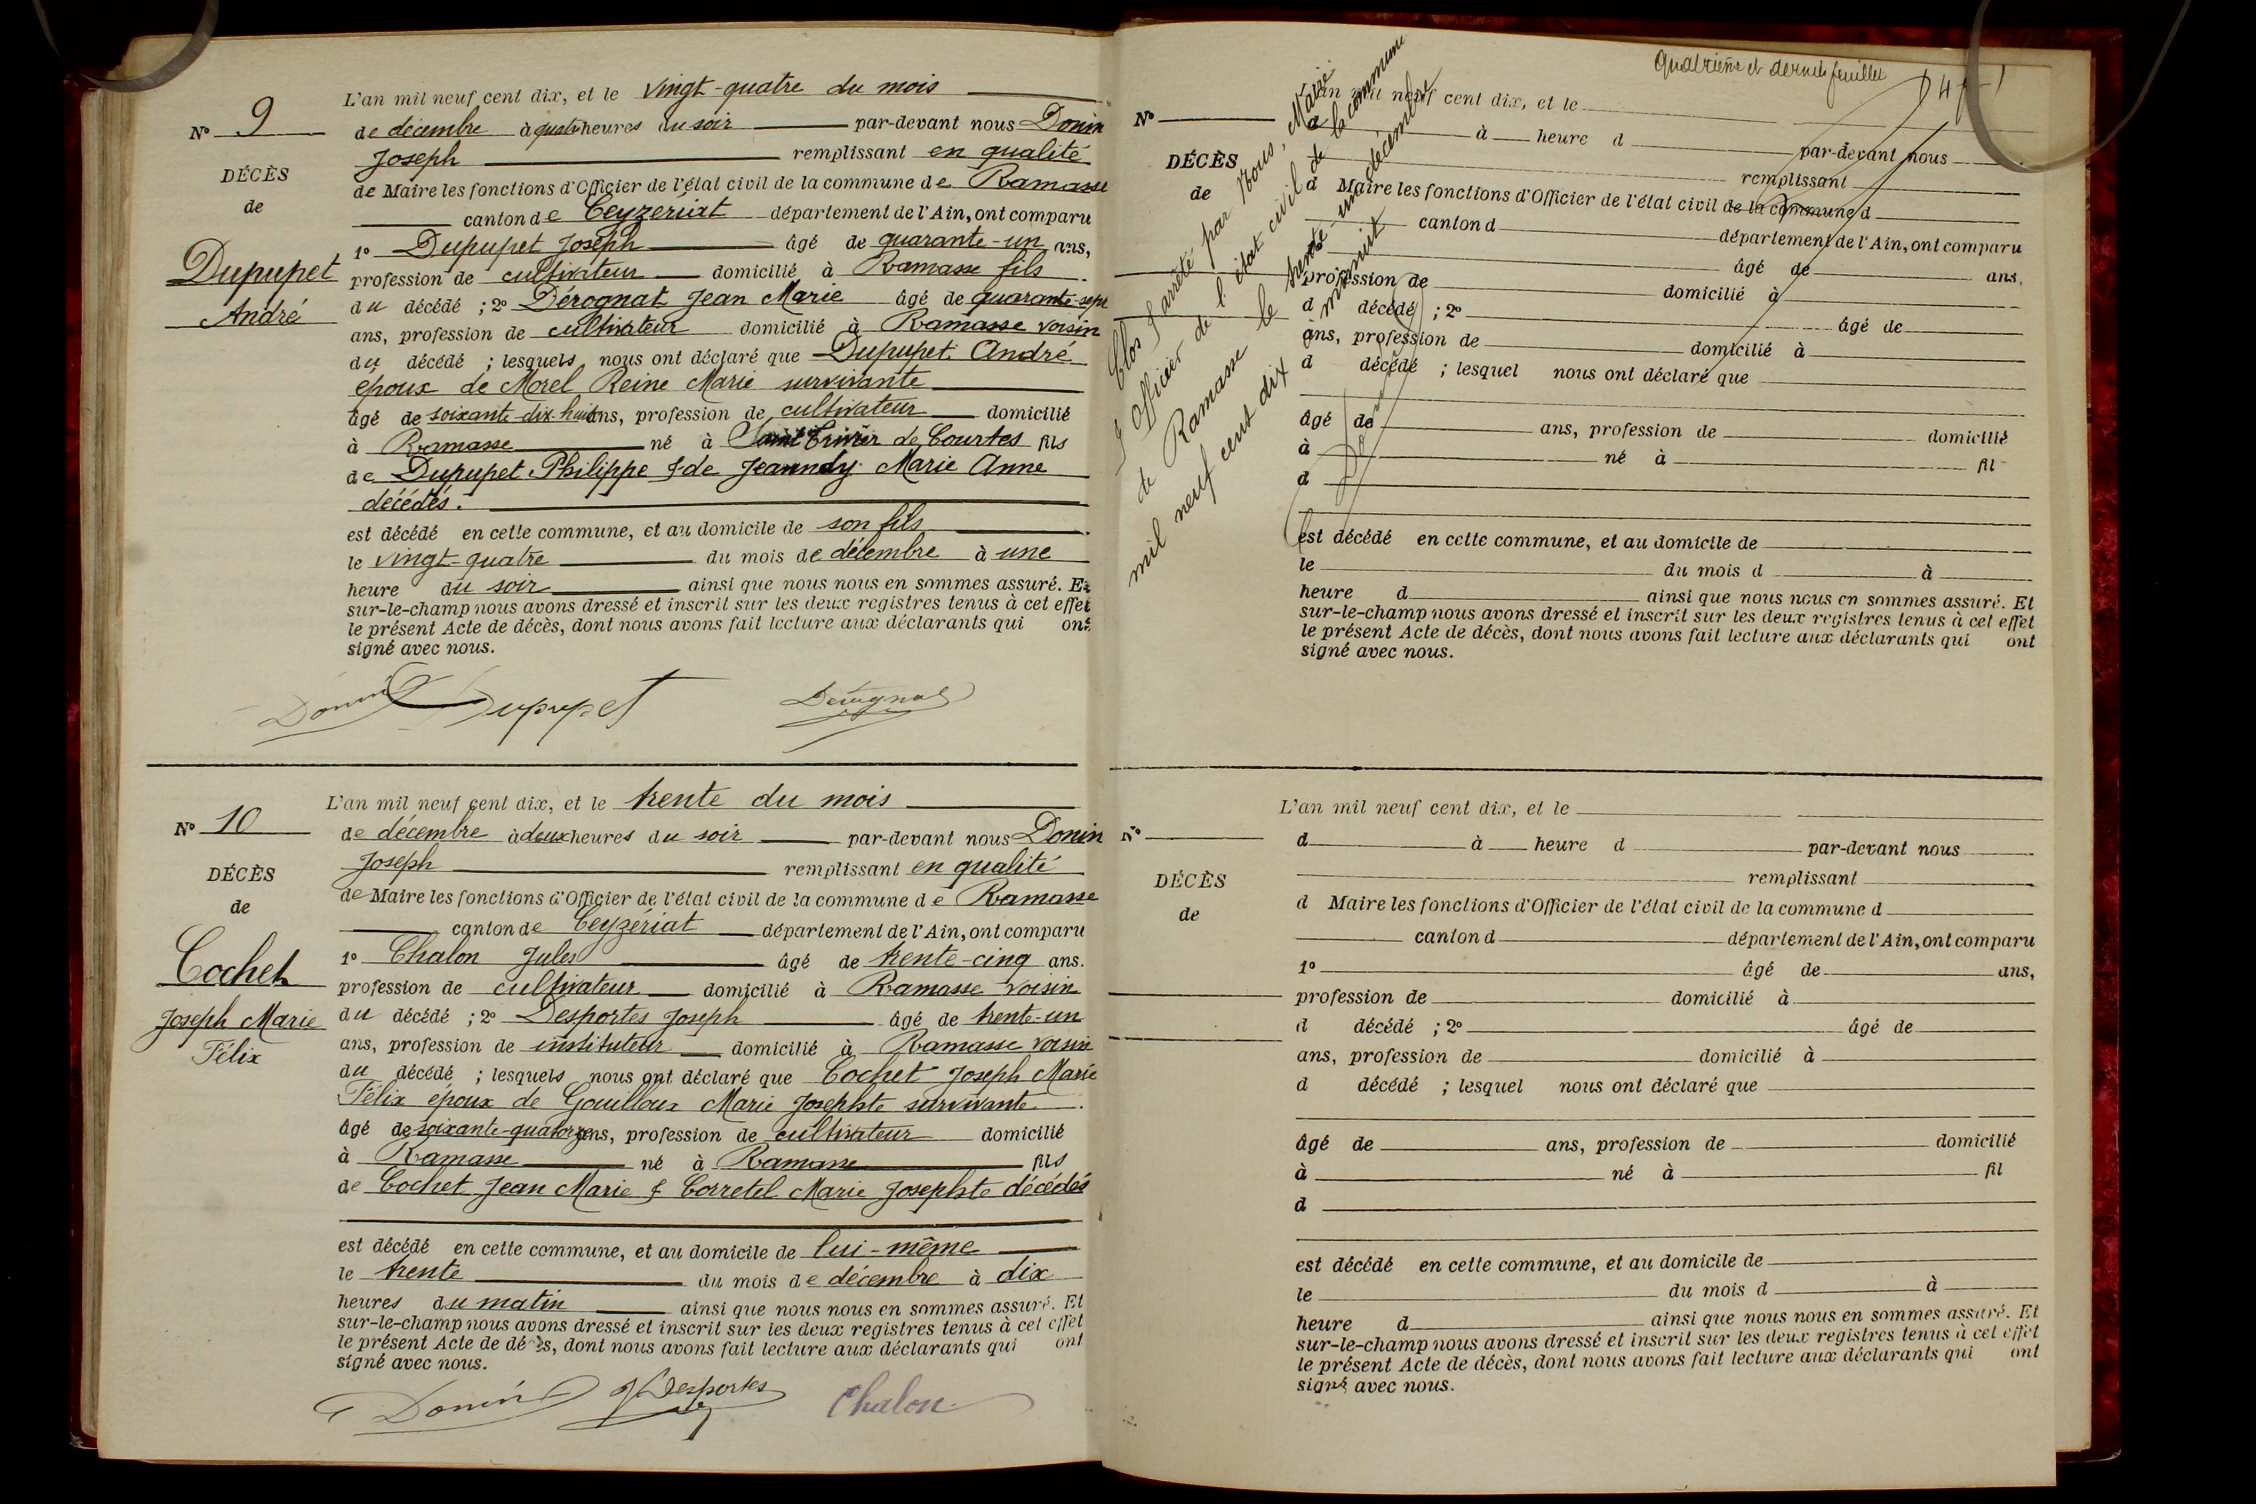 L'an mil neuf cent dix, et le vingt-quatre du mois
Nº 9
de décembre à quatre heures du soir par-devant nous Donin
Joseph remplissant en qualité
DÉCÈS
de Maire les fonctions d'Officier de l'état civil de la commune de Ramasse
de
canton de Ceyzériat département de l'Ain, ont comparu
1º Dupupet Joseph âgé de quarante-un ans,
Dupupet
profession de cultivateur domicilié à Ramasse fils
André
du décédé ; 2º Dérognat Jean Marie âgé de quarante-sept
ans, profession de cultivateur domicilié à Ramasse voisin
du décédé ; lesquels nous ont déclaré que Dupupet André
époux de Morel Reine Marie survivante
âgé de soixante-dix-huit ans, profession de cultivateur domicilié
à Ramasse né à Saint Trivier de Courtes fils
de Dupupet Philippe & de Jeanndy Marie Anne
décédés.
est décédé en cette commune, et au domicile de son fils
le vingt-quatre du mois de décembre à une
heure du soir ainsi que nous nous en sommes assuré. Et
sur-le-champ nous avons dressé et inscrit sur les deux registres tenus à cet effet
le présent Acte de décès, dont nous avons fait lecture aux déclarants qui ont
signé avec nous.
Donin Dupupet Dérognat
L'an mil neuf cent dix, et le trente du mois
Nº 10
de décembre à deux heures du soir par-devant nous Donin
Joseph remplissant en qualité
DÉCÈS
de Maire les fonctions d'Officier de l'état civil de la commune de Ramasse
de
canton de Ceyzériat département de l'Ain, ont comparu
Cochet
1º Chalon Jules âgé de trente-cinq ans.
profession de cultivateur domicilié à Ramasse voisin
Joseph Marie
du décédé ; 2º Desportes Joseph âgé de trente-un
Félix
ans, profession de instituteur domicilié à Ramasse voisin
du décédé ; lesquels nous ont déclaré que Cochet Joseph Marie
Félix époux de Gouilloux Marie Josephte survivante
âgé de soixante-quatorze ans, profession de cultivateur domicilié
à Ramasse né à Ramasse fils
de Cochet Jean Marie & Corretel Marie Josephte décédés
est décédé en cette commune, et au domicile de lui-même
le trente du mois de décembre à dix
heures du matin ainsi que nous nous en sommes assuré. Et
sur-le-champ nous avons dressé et inscrit sur les deux registres tenus à cet effet
le présent Acte de décès, dont nous avons fait lecture aux déclarants qui ont
signé avec nous.
Donin J Desportes Chalon
Quatrième et dernier feuillet
L'an mil neuf cent dix, et le
Nº
d à heure d par-devant nous
DÉCÈS
remplissant
de
d Maire les fonctions d'Officier de l'état civil de la commune d
canton d département de l'Ain, ont comparu
âgé de ans,
profession de domicilié à
d décédé ; 2º âgé de
ans, profession de domicilié à
d décédé ; lesquel nous ont déclaré que
âgé de ans, profession de domicilié
à né à fil
d
est décédé en cette commune, et au domicile de
le du mois d à
heure d ainsi que nous nous en sommes assuré. Et
sur-le-champ nous avons dressé et inscrit sur les deux registres tenus à cet effet
le présent Acte de décès, dont nous avons fait lecture aux déclarants qui ont
signé avec nous.
Clos & arrêté par Nous, Maire
& Officier de l'état civil de la commune
de Ramasse le trente-un décembre
mil neuf cent dix à minuit
Donin
L'an mil neuf cent dix, et le
Nº
d à heure d par-devant nous
remplissant
DÉCÈS
d Maire les fonctions d'Officier de l'état civil de la commune d
de
canton d département de l'Ain, ont comparu
1º âgé de ans,
profession de domicilié à
d décédé ; 2º âgé de
ans, profession de domicilié à
d décédé ; lesquel nous ont déclaré que
âgé de ans, profession de domicilié
à né à fil
d
est décédé en cette commune, et au domicile de
le du mois d à
heure d ainsi que nous nous en sommes assuré. Et
sur-le-champ nous avons dressé et inscrit sur les deux registres tenus à cet effet
le présent Acte de décès, dont nous avons fait lecture aux déclarants qui ont
signé avec nous.